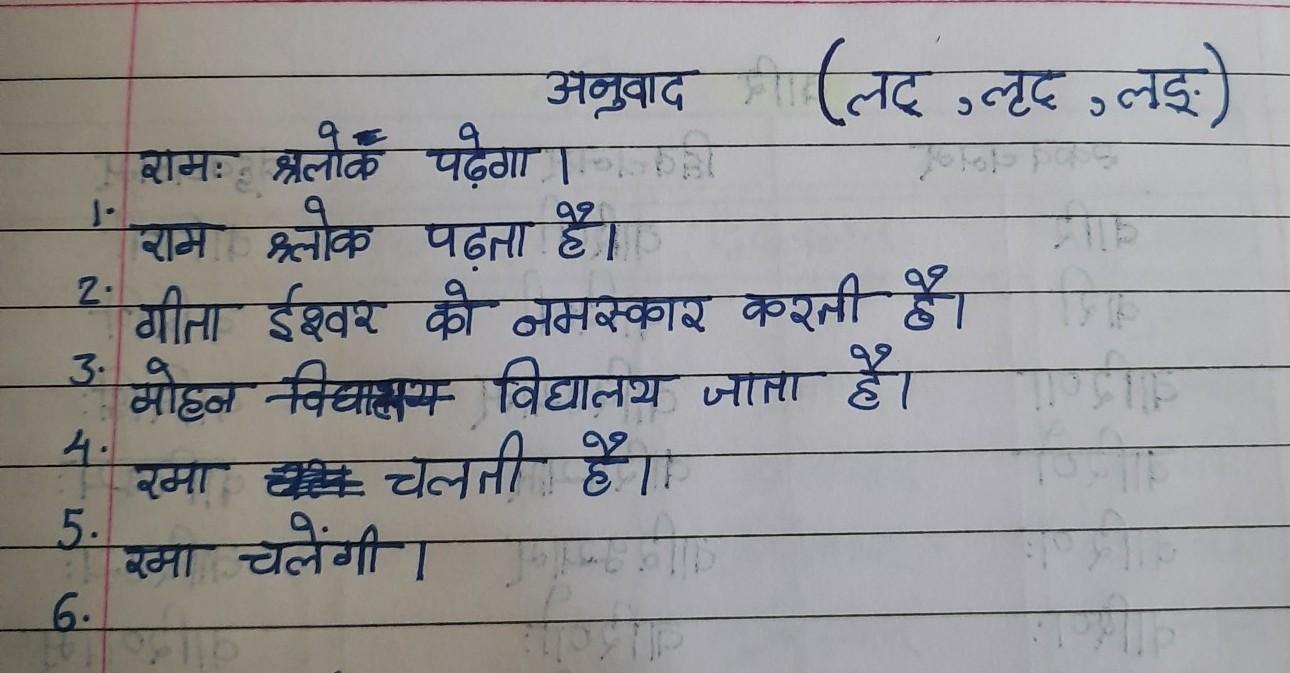 अनुवाद (लट् , लृट् , लङ्)
रामः श्लोकं पढ़ेगा ।
1. राम श्लोक पढ़ता है।
2. गीता ईश्वर को नमस्कार करती है।
3. मोहन विद्यालय विद्यालय जाता है।
4. रमा चलती है।
5. रमा चलेंगी ।
6.